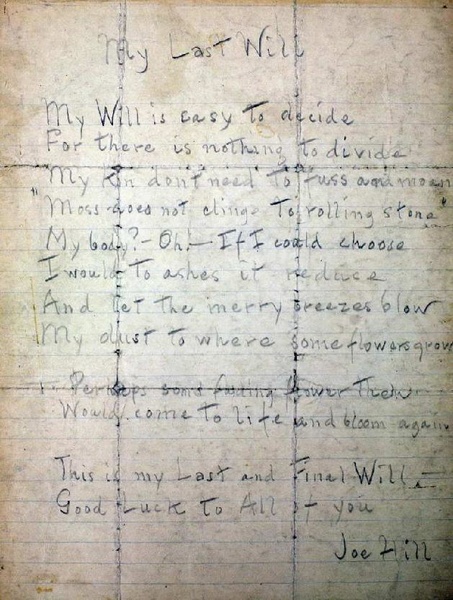 My Last Will
My Will is easy to decide
For there is nothing to divide
My kin don't need to fuss and moan
"Moss does not cling to rolling stone"
My body? - Oh! - If I could choose
I would to ashes it reduce
And let the merry breezes blow
My dust to where some flowers grow
Perhaps some fading flower then
Would come to life and bloom again
This is my Last and Final Will
Good Luck to All of you
Joe Hill